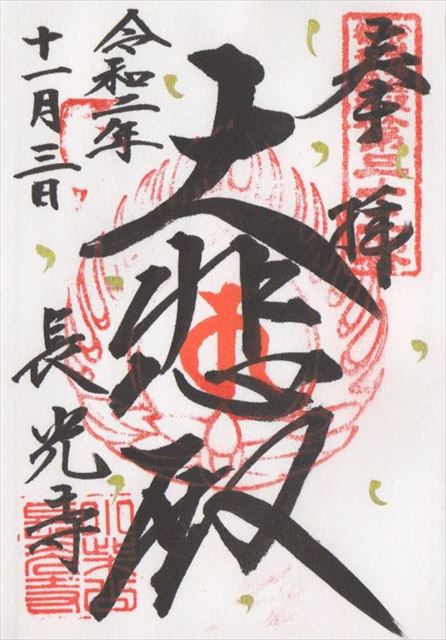 奉拝
大悲殿
令和二年
十一月三日
長光寺